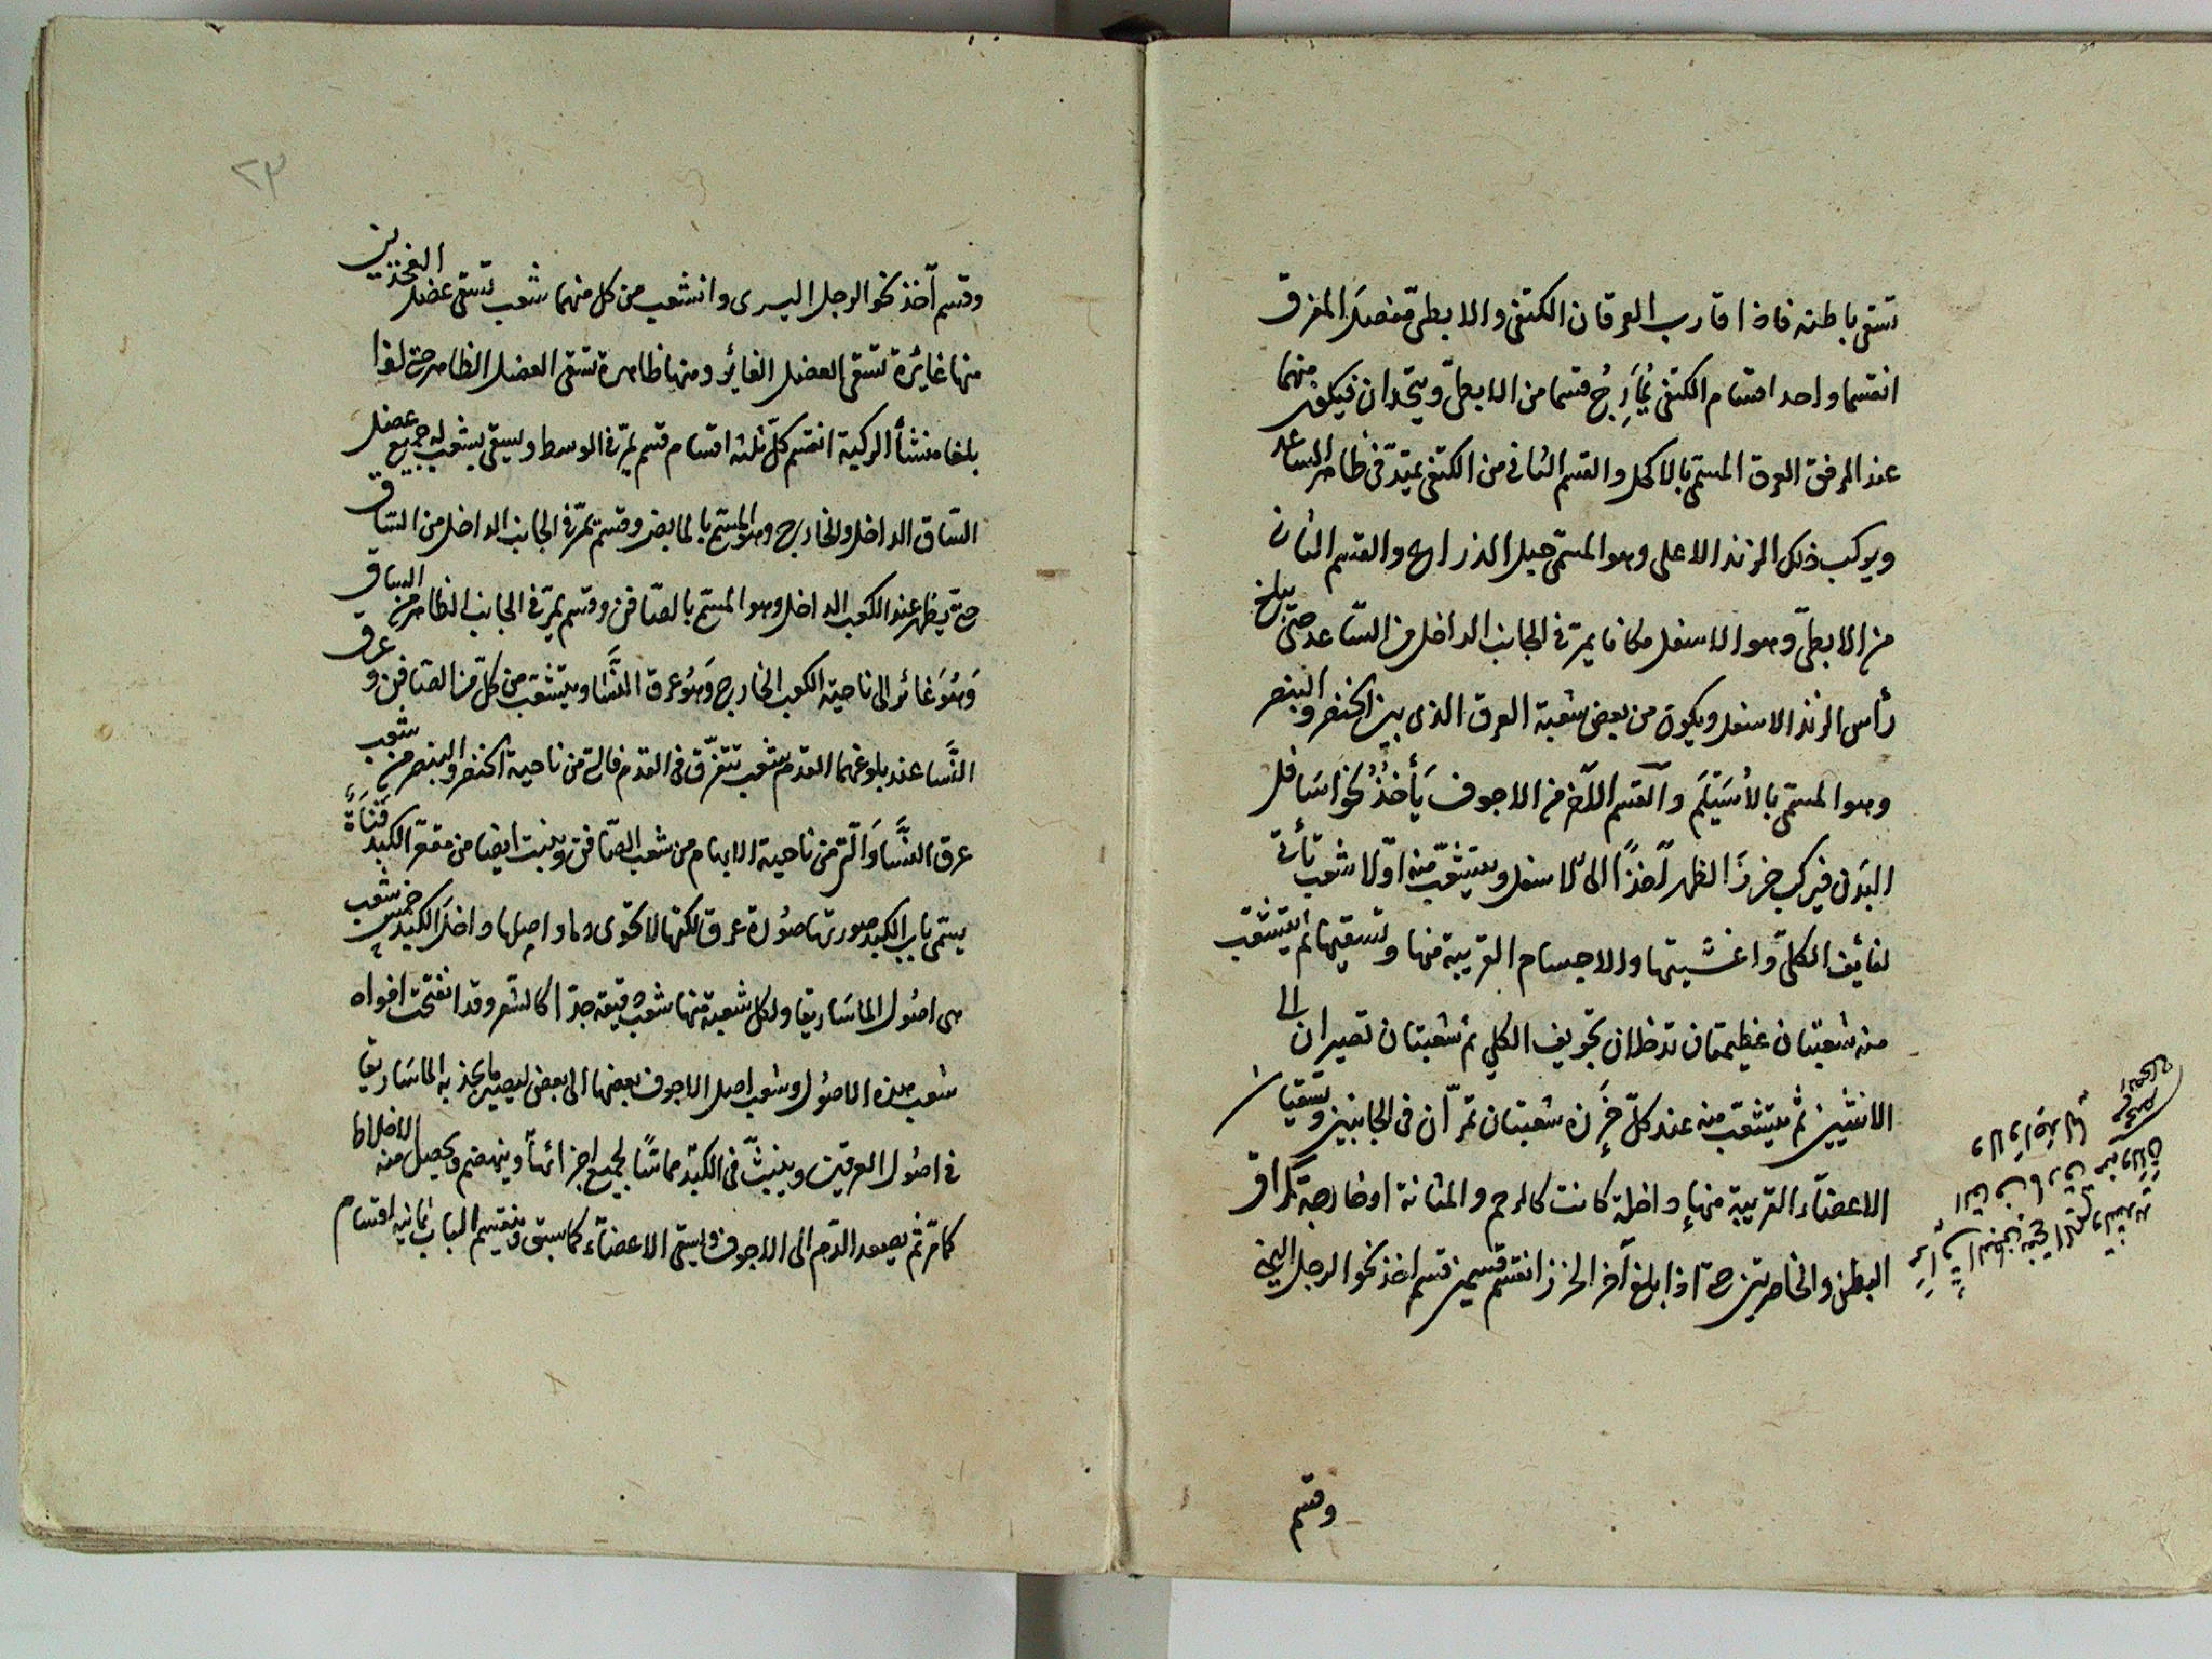 تسقى باطنه فاذا قارب العرقان الكتفى والابطىّ مفصل المرفق
انقسما واحد اقسام الكتفى يُمَازِجُ قسما من الابطىّ ويتّحدان فيكون منهما
عند المرفق العرق المسمّى بالاكحل والقسم الثانى من الكتفى يمتدّ فى ظاهر الساعد
ويركب ذلك الزند الاعلى وهو المسمّى حبل الذراع والقسم الثانى
من الابطىّ وهو الاسفل مكانا يمرّ فى الجانب الداخل من السّاعد حتّى يبلغ
رأس الزند الاسفل ويكون من بعض شعبة العرق الذى بين الخنصر والبنصر
وهو المسمّى بالأُسَيْلَم وآلقسم الآخر من الاجوف يَأخُذُ نحو اسَافل
البَدَن فيركب خرزَ الظهر آخذًا الى الاسفل ويتشعّب منه اوّلا شعب تأتى
لفائف الكلىّ واغشيتها والاجسام القريبة منها وتسقيها ثم يتشعّب
منه شعبتان عظيمتان تدخلان تجويف الكلى ثم شعبتان تصيران الى
الانثيين ثم يتشعّب منه عند كلّ خَرَزة شعبتان تمرّان فى الجانبين وتسقيان
الاعضاء القريبة منها داخلة كانت كالرحم والمثانة او خارجة كمراق
البطن والخاصرتين حتّى اذا بلغ آخر الخرز انقسم قسمين قسم اخذ نحو الرجل اليمنى
وقسم
٢٣
وقسم آخذ نحو الرجل اليسرى وانشعب من كل منهما شعب تسقى عضل الفخذين
منها غائرة تسقى العضل الغائر ومنها ظاهرة تسقى العضل الظاهر حتى اذا
بلغا منشأ الركبة انقسم كلّ ثلثه اقسام قسم يمرّ فى الوسط ويسقى بشعب له جميع عضل
السّاق الداخل والخارج وهو المسمّى بالمابض وقسم يمرّ فى الجانب الداخل من السّاق
حتّى يظهر عند الكعب الداخل وهو المسمّى بالصّافن وقسم يمرّ فى الجانب الظاهر من الساق
وَهُوَ غائر الى ناحية الكعب الخارج وَهُوَ عرق النَّسَا ويتشعّب من كلّ من الصّافن وعرق
النَّسا عند بلوغهما القدم شعب تتفرّق فى القدم فالتى من ناحية الخنصر والبنصر من شعب
عرق النَّسا وَالّتى من ناحية الابهام من شعب الصّافن وينبت ايضا من مقعّر الكبد قَنَاةٌ
يسمّى باب الكبد صورتها صُورة عرق لكنها لا تحوى دما واصلها داخل الكبد خمس شعب
هى اصُول الماسَاريقا ولكل شعبة منها شعب دقيقة جدّا كالشعر وقد انفتحت افواه
شعب هذه الاصُول وشعب اصل الاجوف بعضها الى بعض ليصير ما يجذبه الماسَاريقا
فى اصُول العرقين وينبثّ فى الكبد مماسًّا لجميع اجزائها وينهضم ويحصل منه الاخلاط
كما مرّ ثم يصعد الدّم الى الاجوف ويسقى الاعضآء كما سبق وينقسم الباب ثمانيه اقسام